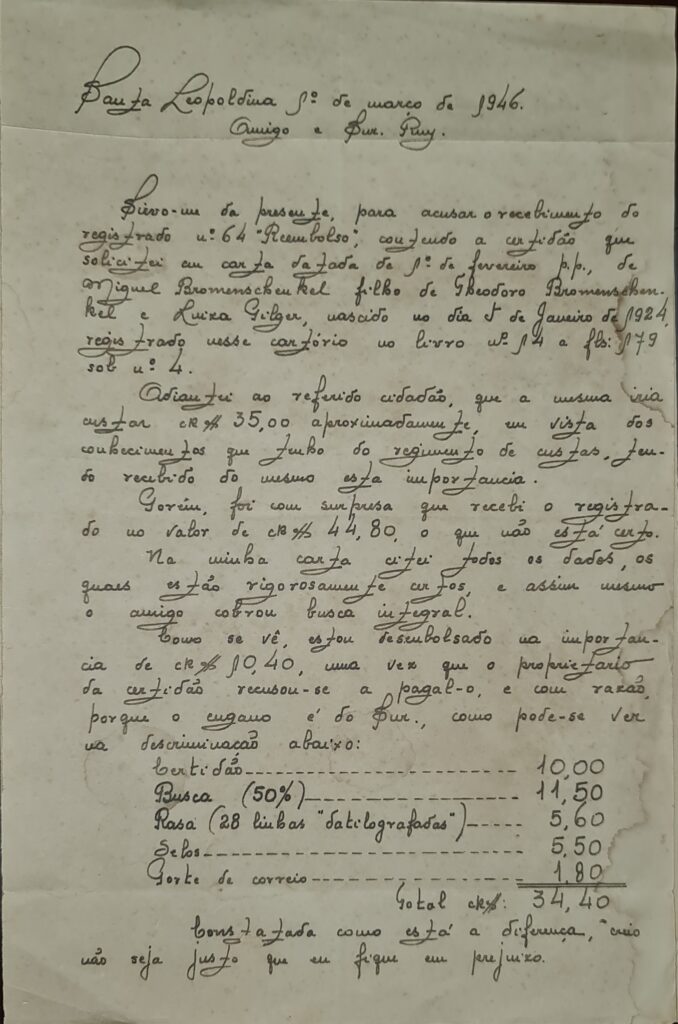 Santa Leopoldina 1º de março de 1946.
Amigo e Snr. Ruy.
Sirvo-me da presente, para acusar o recebimento do
registrado nº 64 "Reembolso", contendo a certidão que
solicitei em carta datada de 1º de fevereiro p.p., de
Miguel Bromenschenkel filho de Theodoro Bromenschen-
kel e Luiza Gilger, nascido no dia 5 de Janeiro de 1924,
registrado nesse cartório no livro nº 14 a fls: 179
sob nº 4.
Adiantei ao referido cidadão, que a mesma iria
custar cR$ 35,00 aproximadamente, em vista dos
conhecimentos que tenho do regimento de custas, ten-
do recebido do mesmo esta importancia.
Porém, foi com surpresa que recebi o registra-
do no valor de cR$ 44,80, o que não está certo.
Na minha carta citei todos os dados, os
quaes estão rigorosamente certos, e assim mesmo
o amigo cobrou busca integral.
Como se vê, estou desembolsado na importan-
cia de cR$ 10,40, uma vez que o proprietario
da certidão recusou-se a pagal-o, e com razão,
porque o engano é do Snr., como pode-se ver
na descriminação abaixo:
Certidão---------- 10,00
Busca (50%)---------- 11,50
Rasa (28 linhas "datilografadas")----- 5,60
Selos---------- 5,50
Porte de correio---------- 1,80
Total cR$: 34,40
Constatada como está a diferença, creio
não seja justo que eu fique em prejuizo.